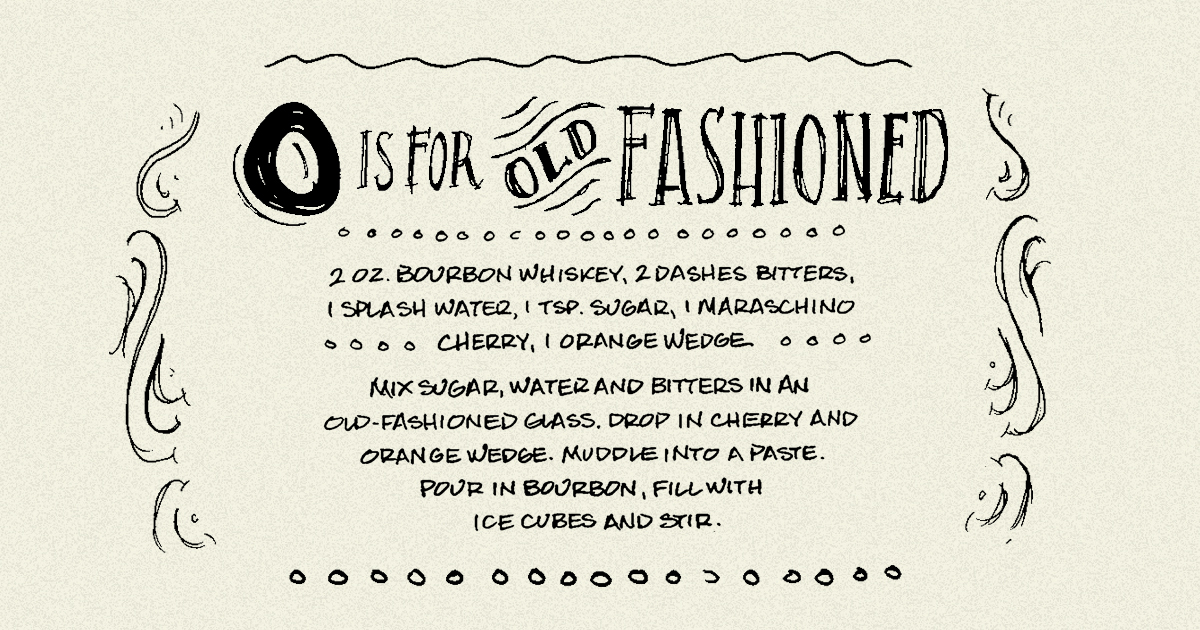 O IS FOR OLD FASHIONED
2 OZ. BOURBON WHISKEY, 2 DASHES BITTERS,
1 SPLASH WATER, 1 TSP. SUGAR, 1 MARASCHINO
CHERRY, 1 ORANGE WEDGE
MIX SUGAR, WATER AND BITTERS IN AN
OLD-FASHIONED GLASS. DROP IN CHERRY AND
ORANGE WEDGE. MUDDLE INTO A PASTE.
POUR IN BOURBON, FILL WITH
ICE CUBES AND STIR.